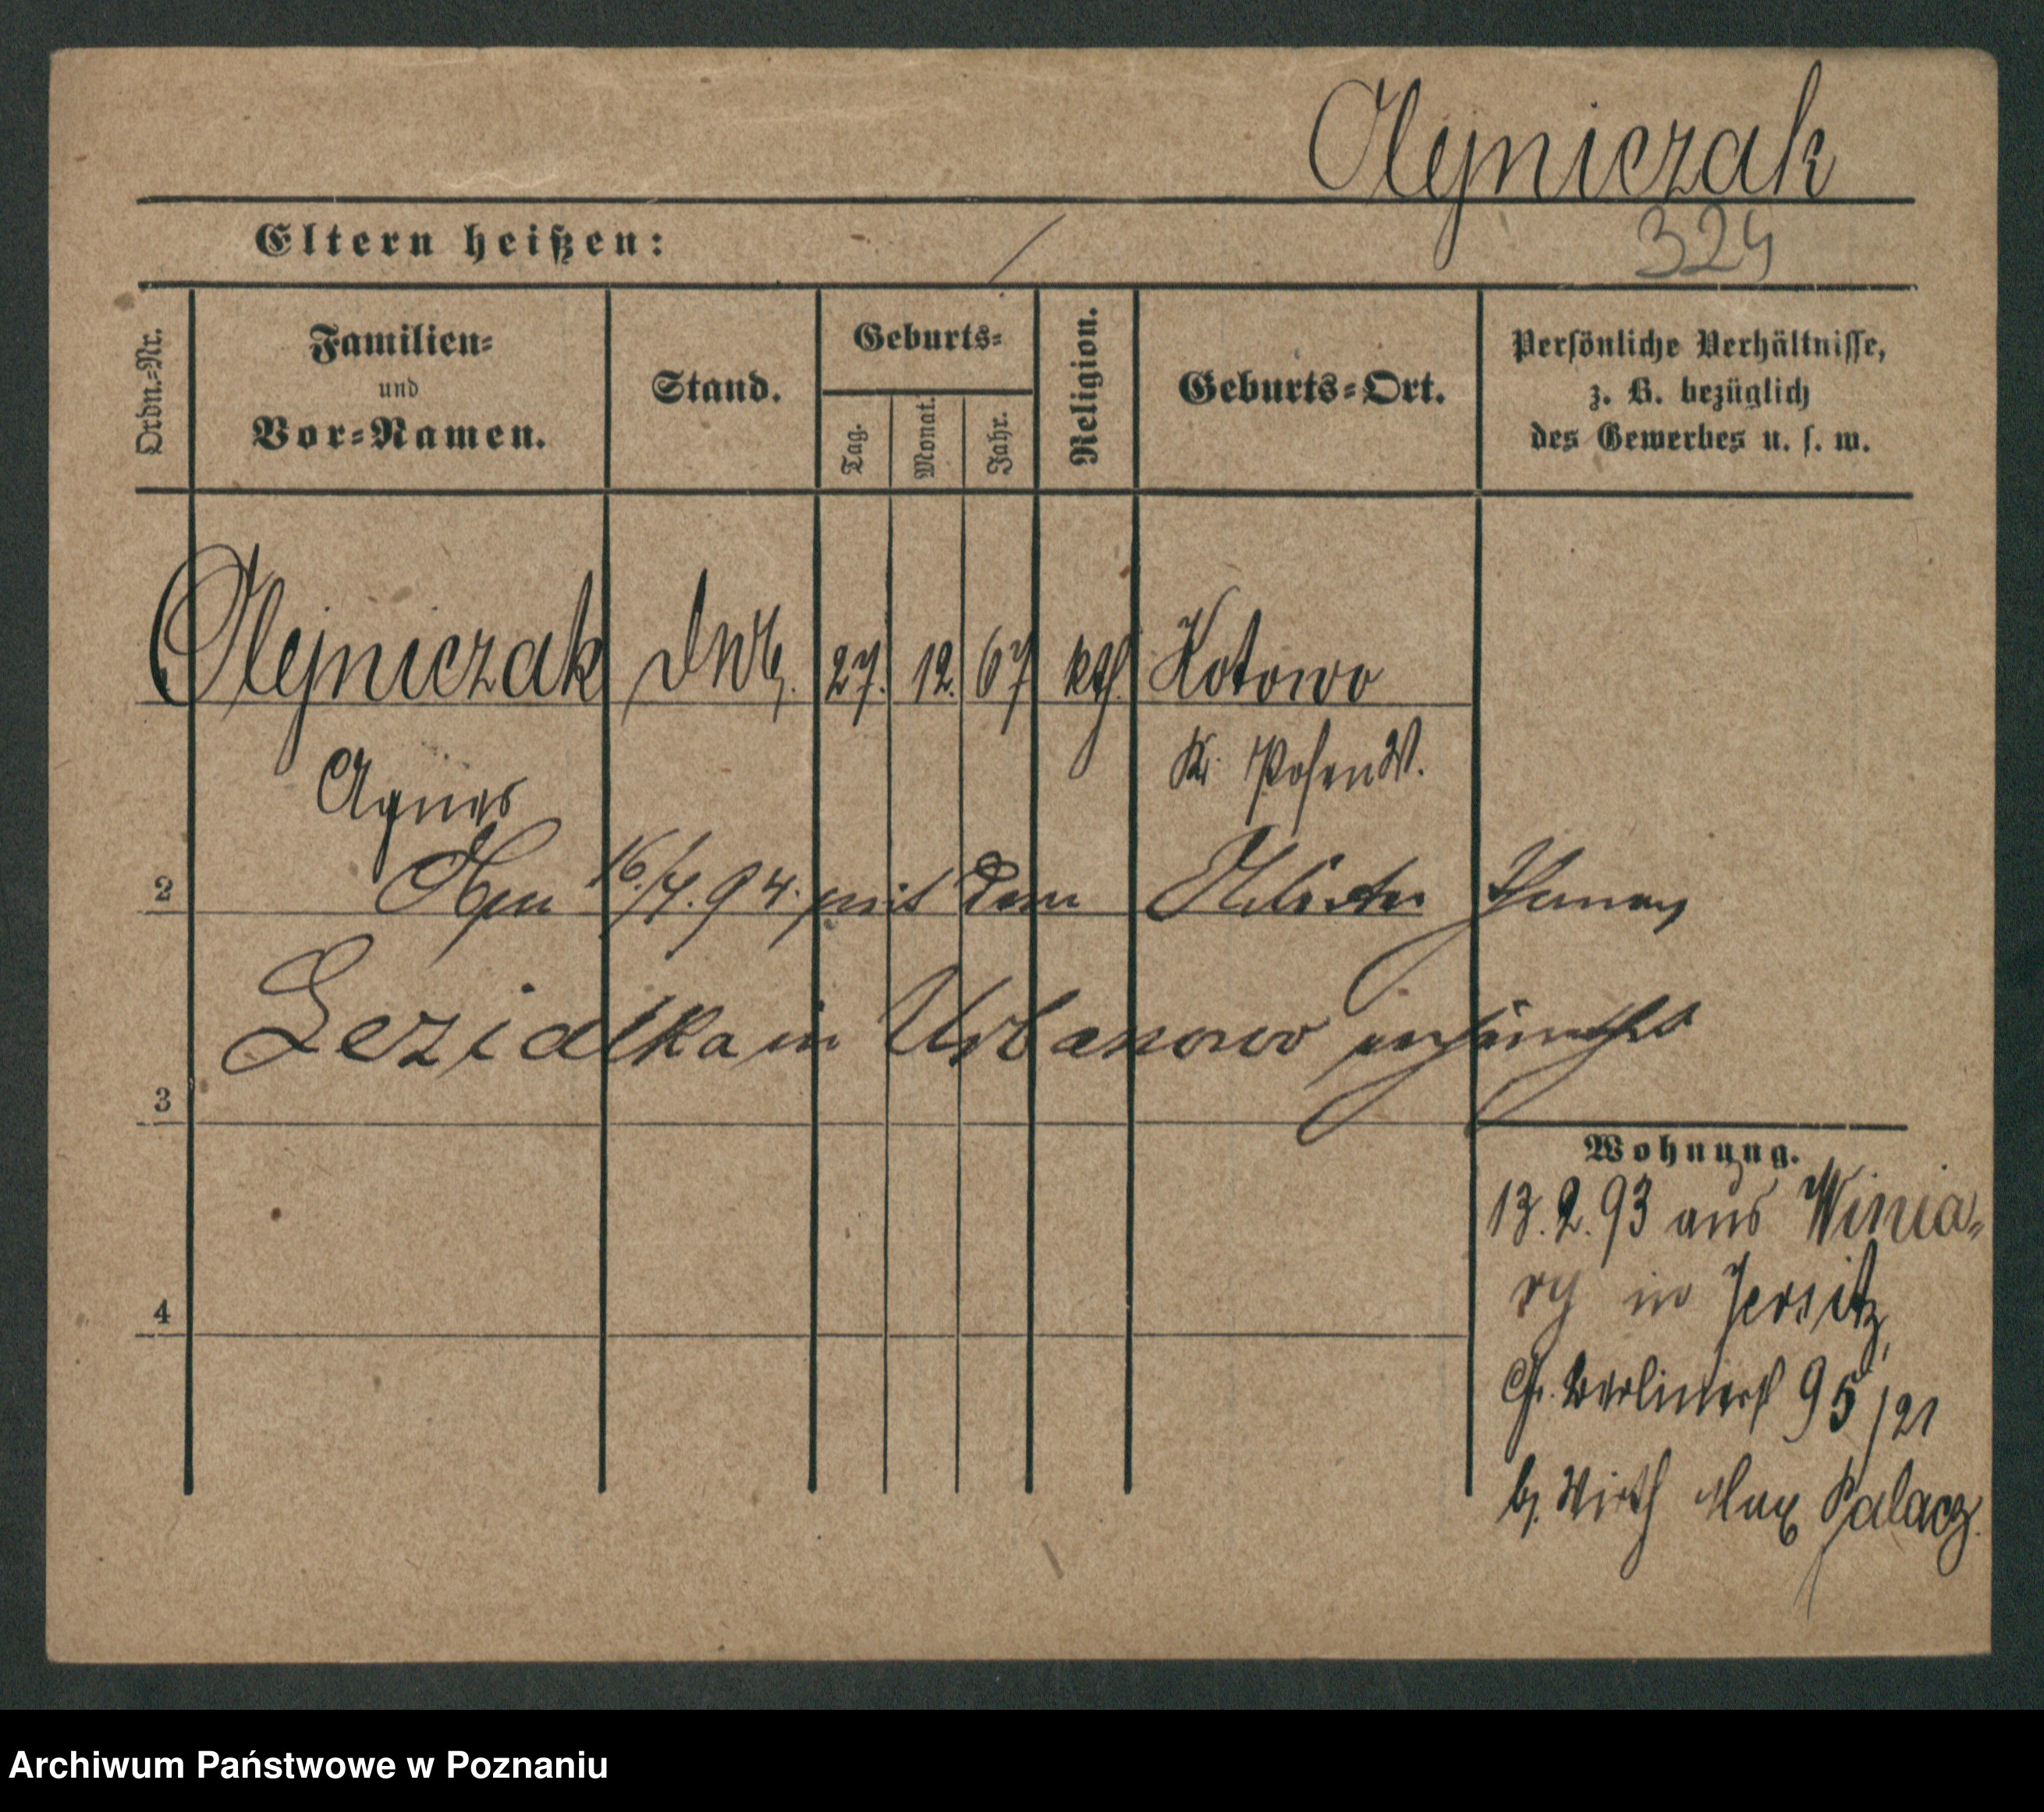 Olejniczak
Eltern heißen: /
324
Ordn.-Nr.
Familien-
und
Vor-Namen.
Stand.
Geburts-
Tag.
Monat.
Jahr.
Religion.
Geburts-Ort.
Persönliche Verhältnisse,
z. B. bezüglich
des Gewerbes u. s. w.
Olejniczak 27. 12. 67 kth. Kotowo
Agnes Kr. Posen W.
2
16./4. 94. mit dem Arbeiter
in Urbanowo verheirathet
3
Wohnung.
13.2.93 aus Winia-
ry in Jersitz,
Gr. Berlinerst 95/21
b. Wirth Max Palacz.
4
Archiwum Państwowe w Poznaniu